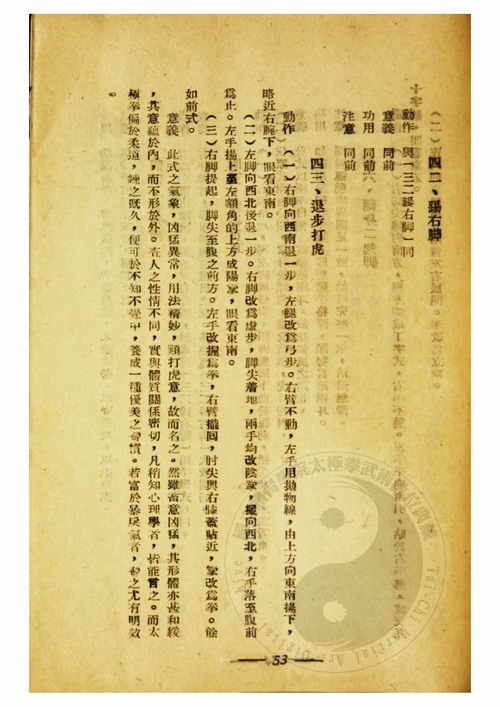 四二、踢右脚
動作　與「三二踢右脚」同
意義　同前
功用　同前
注意　同前
四三、退步打虎
動作　(一)右脚向西南退一步，左腿改爲弓步。右臂不動，左手用拋物線，由上方向東南揚下，
略近右腕下，眼看東南。
(二)左脚向西北後退一步。右脚改爲虛步，脚尖着地，兩手均改陰掌，擺向西北，右手落至腹前
爲止。左手揚上至左額角的上方成陽掌，眼看東南。
(三)右脚提起，脚尖至腹之前方。左手改握爲拳，右臂攏回，肘尖與右膝蓋貼近，掌改爲拳。餘
如前式。
意義　此式之氣象，凶猛異常，用法精妙，頗打虎意，故而名之。然雖蓄意凶猛，其形體亦甚和緩
，其意蘊於內，而不形於外。在人之性情不同，實與體質關係密切，凡稍知心理學者，皆能言之。而太
極拳偏於柔道，練之旣久，便可於不知不覺中，養成一種優美之習慣。若富於暴戾氣者，習之尤有明效
。
53